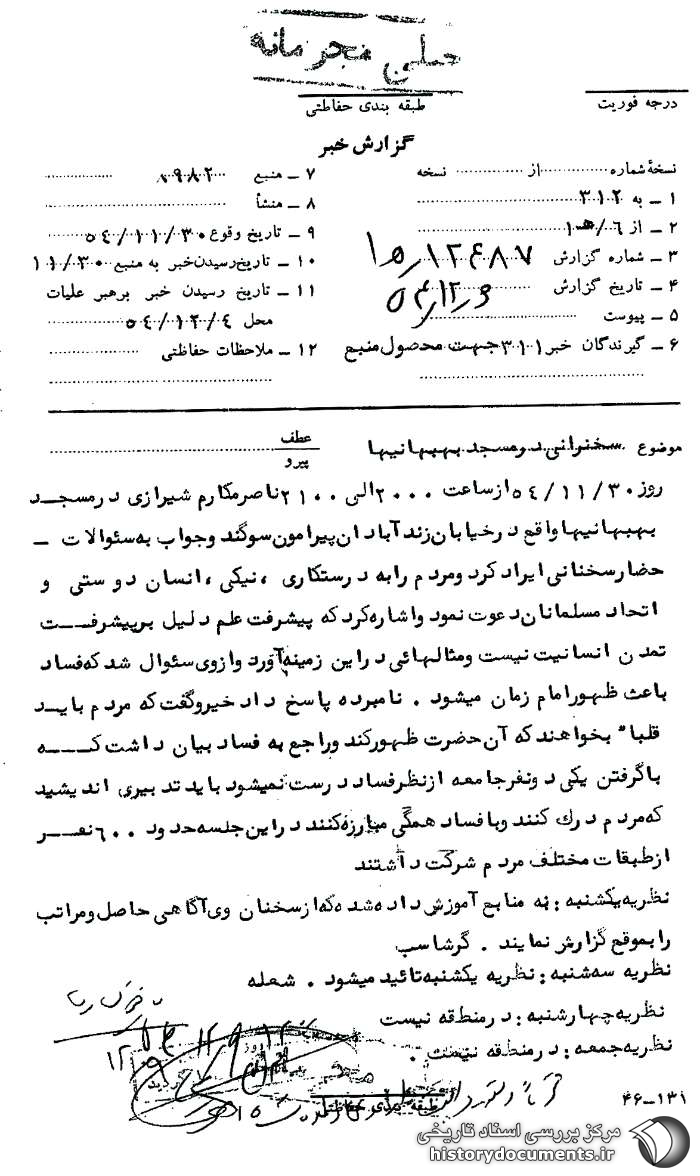 خیلی محرمانه
درجه فوریت
طبقه بندی حفاظتی
گزارش خبر
نسخه شماره ............ از ............ نسخه
۱ ـ به ۳۱۲
۲ ـ از ۶/هـ ۱
۳ ـ شماره گزارش ۱۲۴۸۷/۱۵
۴ ـ تاریخ گزارش ۵۴/۱۲/۶
۵ ـ پیوست
۶ ـ گیرندگان خبر ۳۱۱ جهت محصول منبع
۷ ـ منبع ۹۸۲
۸ ـ منشأ
۹ ـ تاریخ وقوع ۵۴/۱۱/۳۰
۱۰ ـ تاریخ رسیدن خبر به منبع ۱۱/۳۰
۱۱ ـ تاریخ رسیدن خبر برهبر عملیات
محل ۵۴/۱۲/۴
۱۲ ـ ملاحظات حفاظتی
موضوع سخنرانی در مسجد بهبهانیها
عطف
پیرو
روز ۵۴/۱۱/۳۰ از ساعت ۲۰۰۰ الی ۲۱۰۰ ناصر مکارم شیرازی در مسجد
بهبهانیها واقع در خیابان زند آبادان پیرامون سوگند و جواب به سئوالات ـ
حضار سخنانی ایراد کرد و مردم را به درستکاری ، نیکی ، انسان دوستی و
اتحاد مسلمانان دعوت نمود و اشاره کرد که پیشرفت علم دلیل بر پیشرفت
تمدن انسانیت نیست و مثالهائی در این زمینه آورد و از وی سئوال شد که فساد
باعث ظهور امام زمان میشود . نامبرده پاسخ داد خیر و گفت که مردم باید
قلباً بخواهند که آن حضرت ظهور کند و راجع به فساد بیان داشت که
با گرفتن یکی دو نفر جامعه از نظر فساد درست نمیشود باید تدبیری اندیشید
که مردم درك کنند و با فساد همگی مبارزه کنند در این جلسه حدود ۶۰۰ نفر
از طبقات مختلف مردم شرکت داشتند
نظریه یکشنبه : به منابع آموزش داده شده که از سخنان وی آگاهی حاصل و مراتب
را بموقع گزارش نمایند . گرشاسب
نظریه سه شنبه : نظریه یکشنبه تائید میشود . شعله
نظریه چهارشنبه : در منطقه نیست
نظریه جمعه : در منطقه نیست .
طبقه بندی حفاظتی
۴۶-۱۳۱
مرکز بررسی اسناد تاریخی
historydocuments.ir